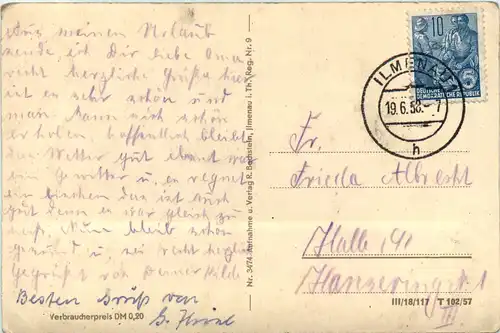 Aus meinen Urlaub
sende, ich Dir liebe Oma
recht herzliche Grüße hier
ist es sehr schön und
man kann sich schön
erholen, hoffentlich bleibt
das Wetter gut
ein Gewitter u. es regnet
ein bischen das ist auch
gut denn es war gleich zu
heiß. Nun bleib schön
gesund u. sei recht herzlich
gegrüßt von Hilde
Besten Gruß von
G.
Verbraucherpreis DM 0,20
Nr. 3474 Aufnahme u. Verlag R. Bechstein, Ilmenau i. Th. Reg. Nr. 9
10
5
DEUTSCHE
DEMOKRATISCHE REPUBLIK
ILMENAU
19.6.58.-7
h
Fr.
Frieda Albrecht
Halle
Hansering 1
III
III/18/117 T 102/57